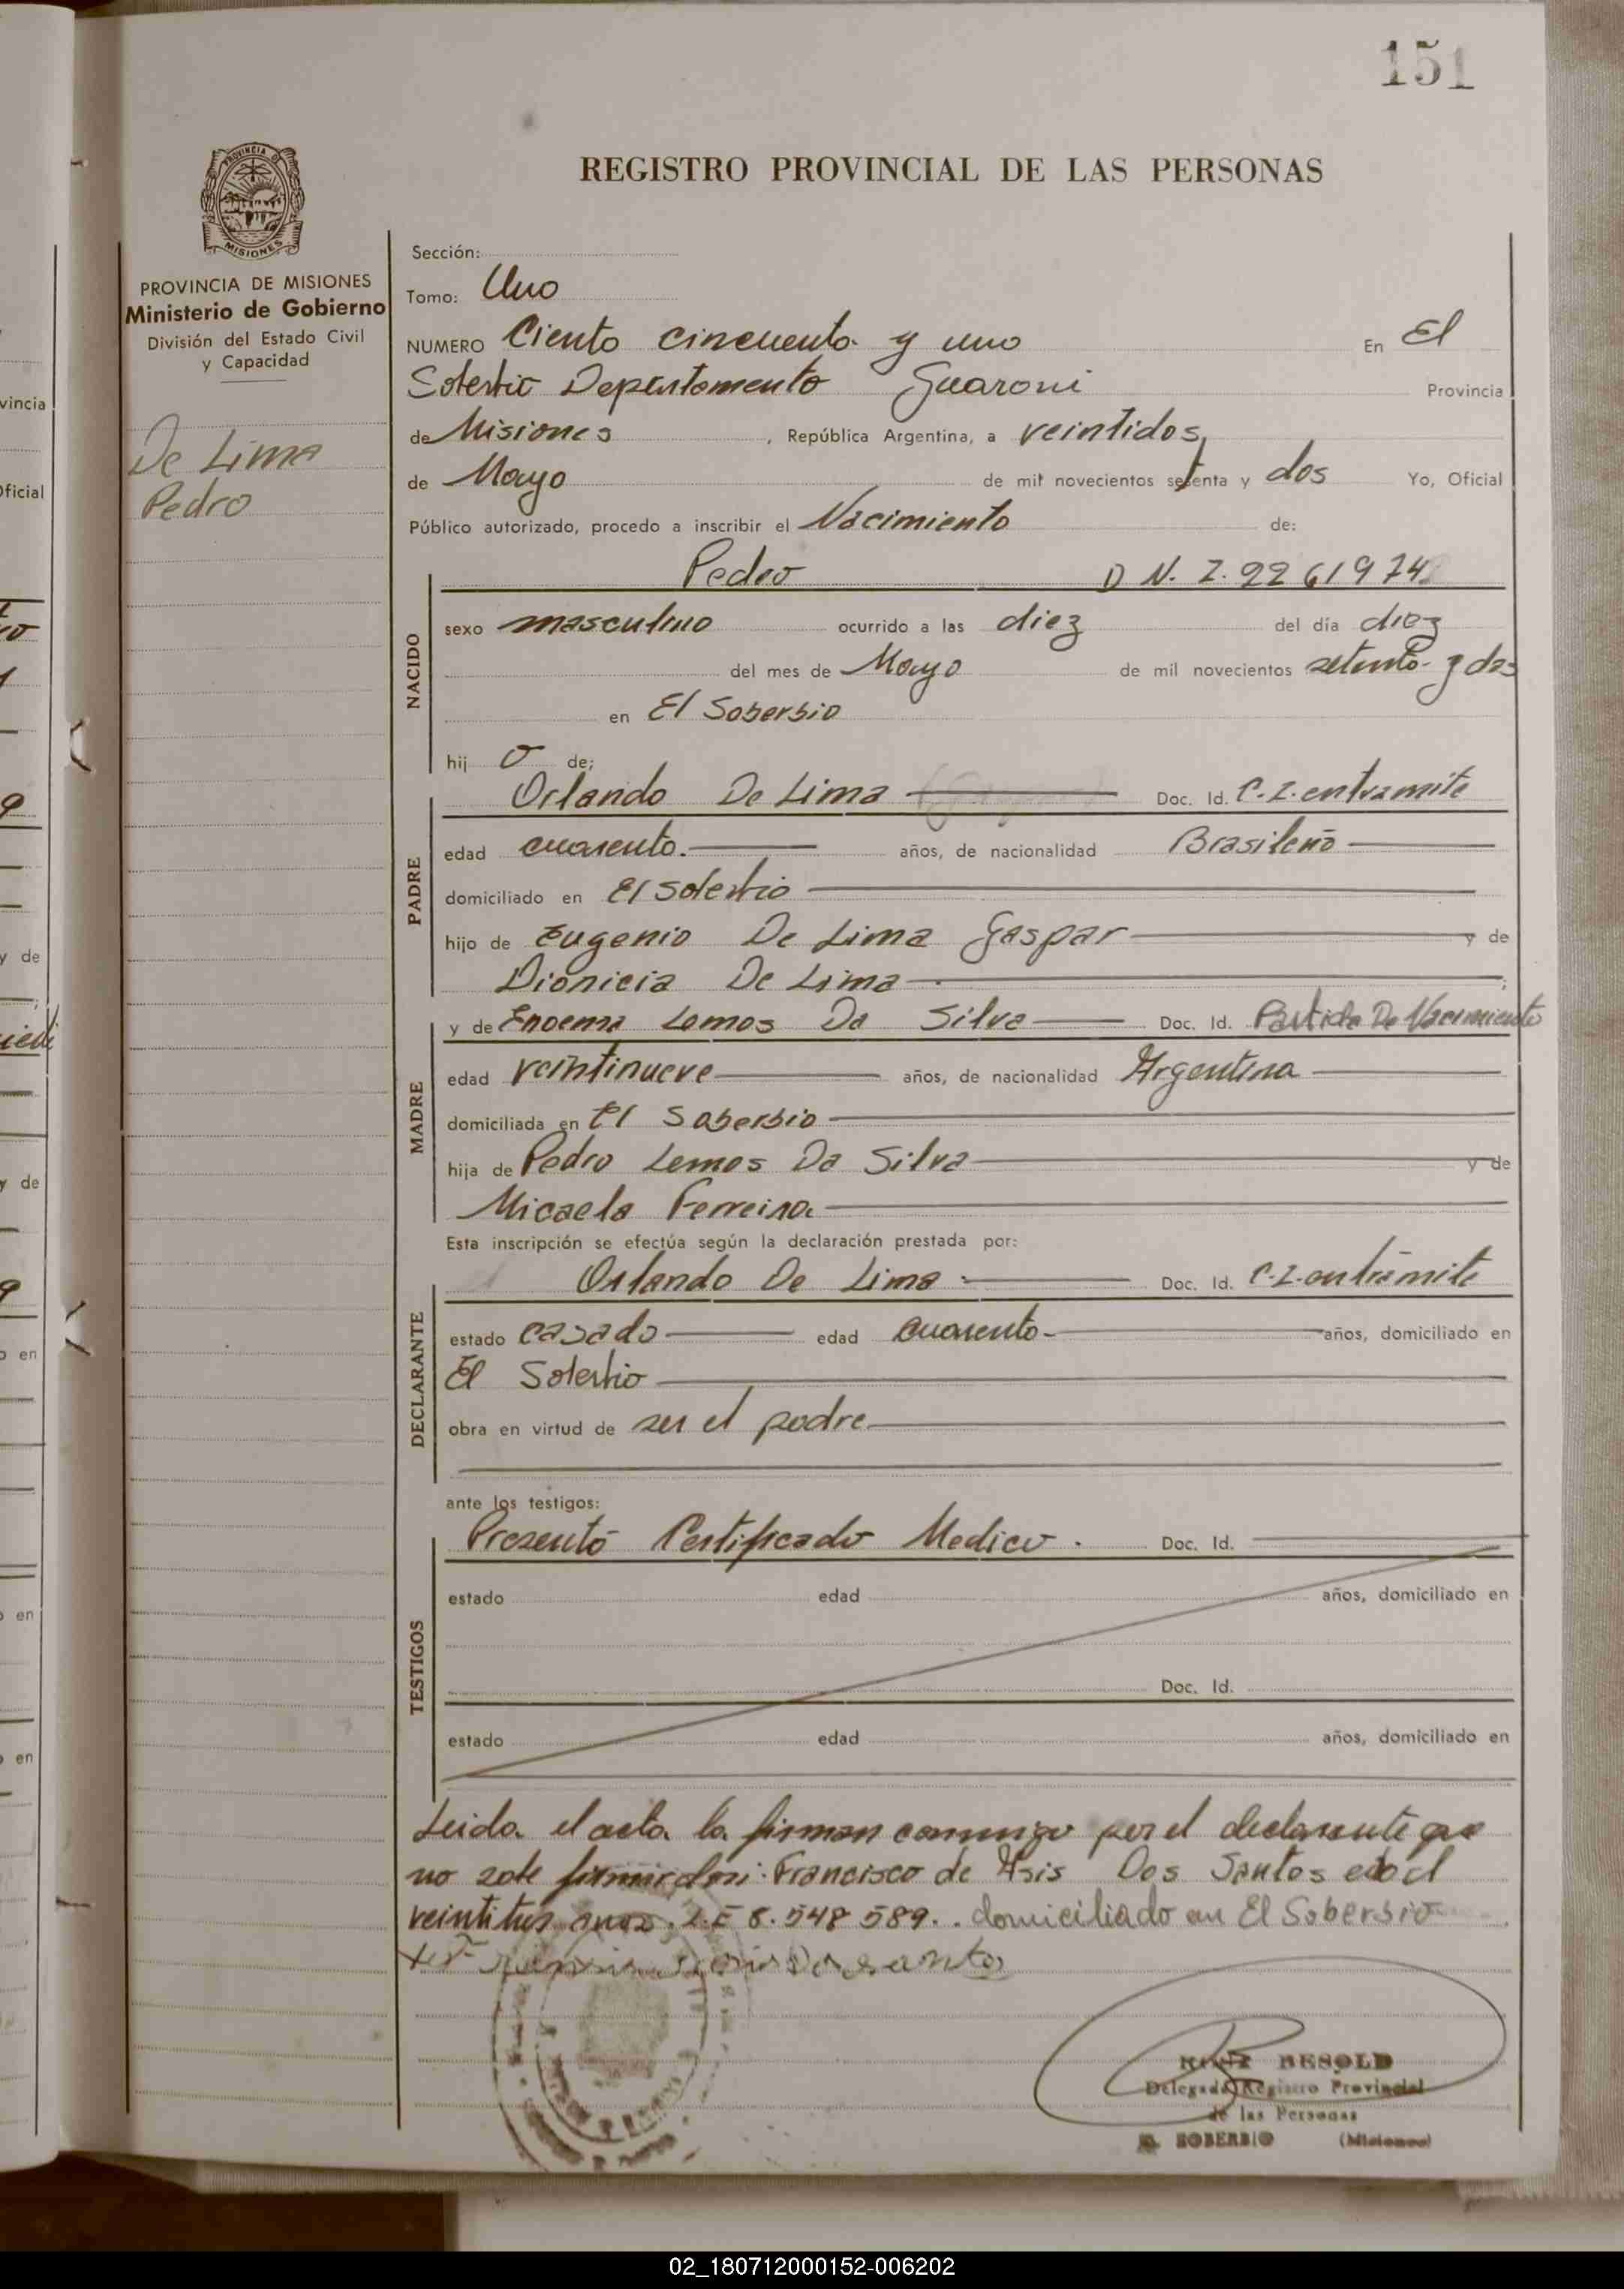 151
REGISTRO PROVINCIAL DE LAS PERSONAS
PROVINCIA DE
MISIONES
PROVINCIA DE MISIONES
Ministerio de Gobierno
División del Estado Civil
y Capacidad
De Lima
Pedro
Sección:
Tomo: Uno
NUMERO Ciento cincuenta y uno En El
Soberbio Departamento Guaroni Provincia
de Misiones, República Argentina, a veintidos
de Mayo de mil novecientos setenta y dos Yo, Oficial
Público autorizado, procedo a inscribir el Nacimiento de:
NACIDO
Pedro D N. I. 22 61974
sexo masculino ocurrido a las diez del día diez
del mes de Mayo de mil novecientos setenta y dos
en El Soberbio
hij o de;
PADRE
Orlando De Lima Doc. Id. C.I. entramite
edad cuarenta. años, de nacionalidad Brasileño
domiciliado en El Soberbio
hijo de Eugenio De Lima Gaspar y de
Dionicia De Lima ;
MADRE
y de Enoema Lemos Da Silva Doc. Id. Partida De Nacimiento
edad veintinueve años, de nacionalidad Argentina
domiciliada en El Soberbio
hija de Pedro Lemos Da Silva y de
Micaela Ferreira
Esta inscripción se efectúa según la declaración prestada por:
DECLARANTE
Orlando De Lima Doc. Id. C.I. entramite
estado casado edad cuarenta años, domiciliado en
El Soberbio
obra en virtud de ser el padre
ante los testigos:
TESTIGOS
Presentó Certificado Medico. Doc. Id.
estado edad años, domiciliado en
Doc. Id.
estado edad años, domiciliado en
Leida el acta la firman conmigo por el declarante que
no sabe Francisco de Asis Dos Santos edad
veintitres años. L.E 8.548 589.. domiciliado en El Soberbio
Dos santos
BESOLD
Delegado Registro Provincial
de las Personas
EL SOBERBIO (Misiones)
02_180712000152-006202